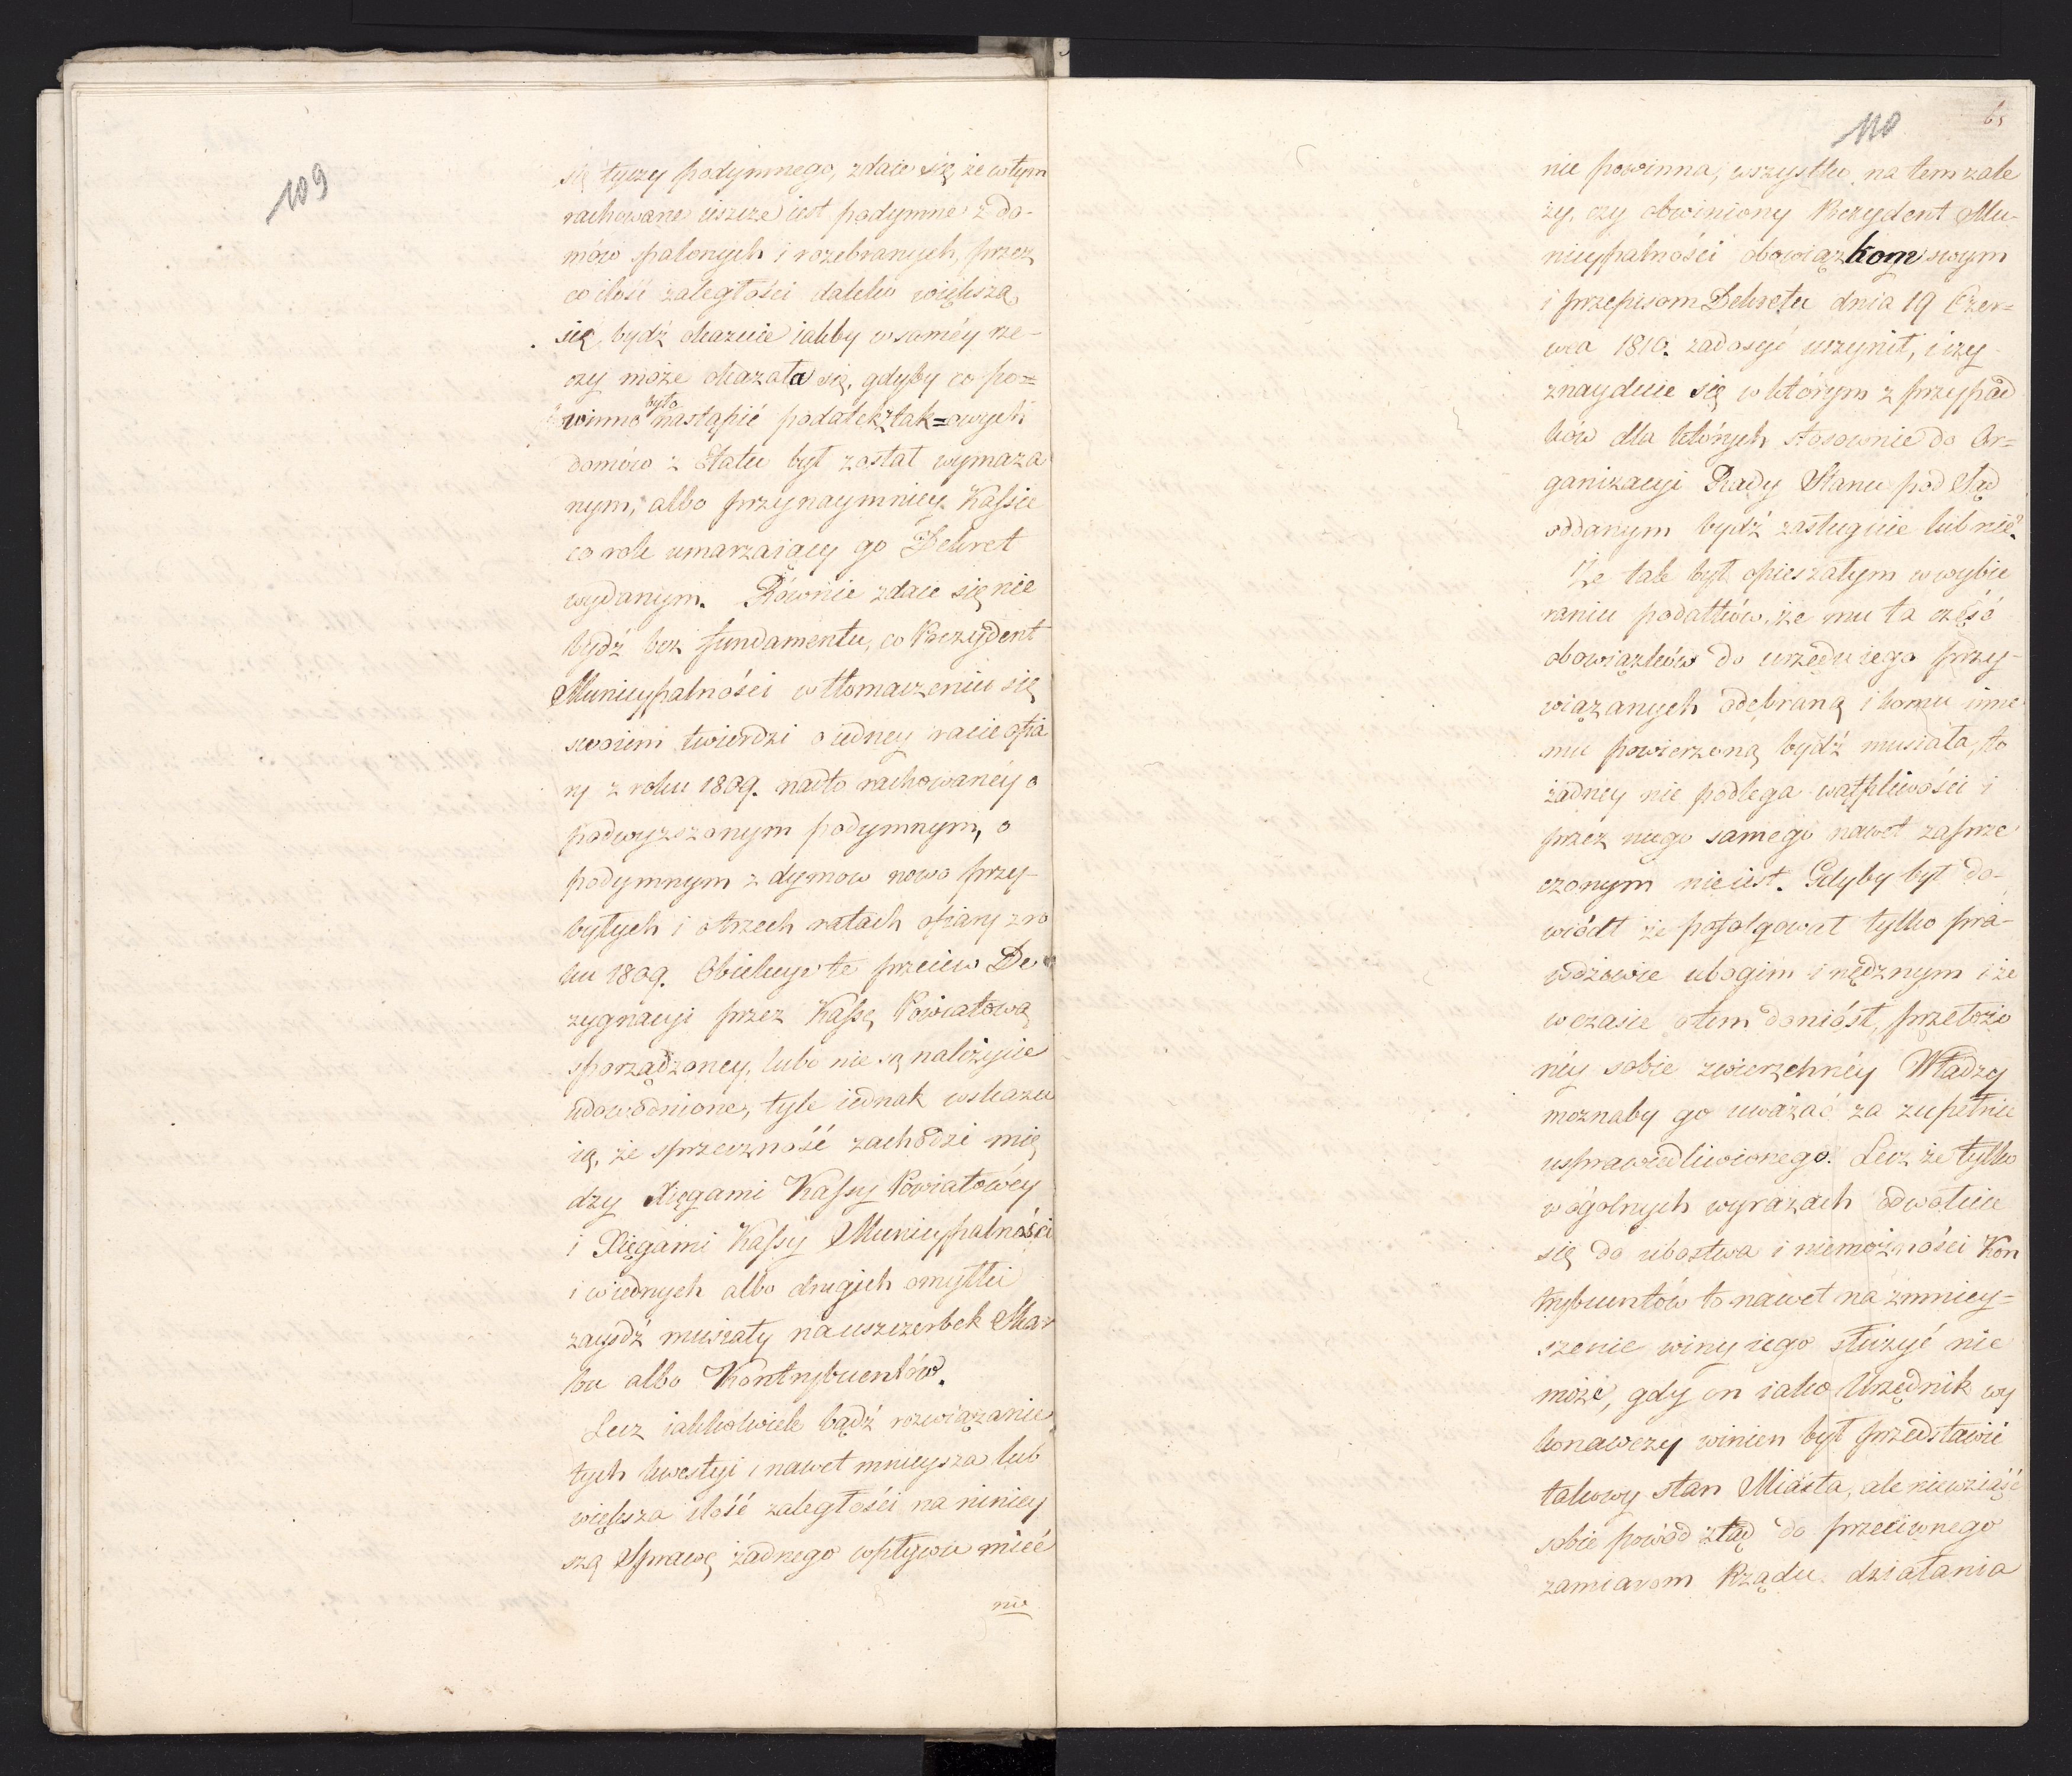 109
się tyczy podymnego, zdaie się, że w tym
rachowane ieszcze iest podymne z do-
mów spalonych i rozebranych, przez
co ilość zaległości daleko większą
się bydź okazuie iakby w saméy rze-
czy może okazała się, gdyby co po=
winno było nastąpić podatek z tak=owych
domów z Etatu był został wymaza
nym, albo przynaymniey Kassie
co rok umarzaiący go Dekret
wydanym. Równie zdaie się nie
bydź bez fundamentu, co Prezydent
Municypalności w tłomaczeniu się
swoiem twierdzi o iedney racie ofia
ry z roku 1809. nadto rachowanéy o
podwyzszonym podymnym, o
podymnym z dymow nowo przy-
byłych i o trzech ratach ofiary z ro
ku 1809. Obiekcye te przeciw De
zygnacyi przez Kassę Powiatową
sporządzoney, lubo nie są należycie
udowodnione, tyle iednak wskazu
ią, że sprzeczność zachodzi mię
dzy Xięgami Kassy Powiatowéy
i Xięgami Kassy Municypalności
i w iednych albo drugich omyłki
zayśdź musiały na uszczerbek Skar
bu albo Kontrybuentów.
Lecz iakkolwiek bądź rozwiązanie
tych kwestyi i nawet mnieysza lub
większa ilość zaległości na niniey
szą Sprawę żadnego wpływu mieć
nie
110
65
nie powinna, wszystko na tem zale
ży, czy obwiniony Prezydent Mu-
nicypalności obowiązkom swym
i przepisom Dekretu dnia 19 Czer=
wca 1810. zadosyć uczynił, i czy
znayduie się w którym z przypad
ków dla których stosownie do Or=
ganizacyi Rady Stanu pod Sąd
oddanym bydź zasługuie lub nie?
Że tak był opieszałym w wybie
raniu podatków, że mu ta część
obowiązków do urzędu iego przy-
wiązanych odebraną i komu inne
mu powierzoną bydź musiała, to
żadney nie podlega wątpliwości i
przez niego samego nawet zaprze
czonym nie iest. Gdyby był do-
wiódł że pofolgował tylko pra-
wdziwie ubogim i nędznym i że
w czasie o tem doniósł, przełożo
néy sobie zwierzchnéy Władzy
moznaby go uważać za zupełnie
usprawiedliwionego. Lecz że tylko
w ogólnych wyrazach odwołuie
się do ubostwa i niemożności Kon
trybuentów to nawet na zmniey=
szenie winy iego służyć nie
może, gdy on iako Urzędnik wy
konawczy winien był przedstawić
takowy stan Miasta, ale nie wziąść
sobie powód ztąd do przeciwnego
zamiarom Rządu działania